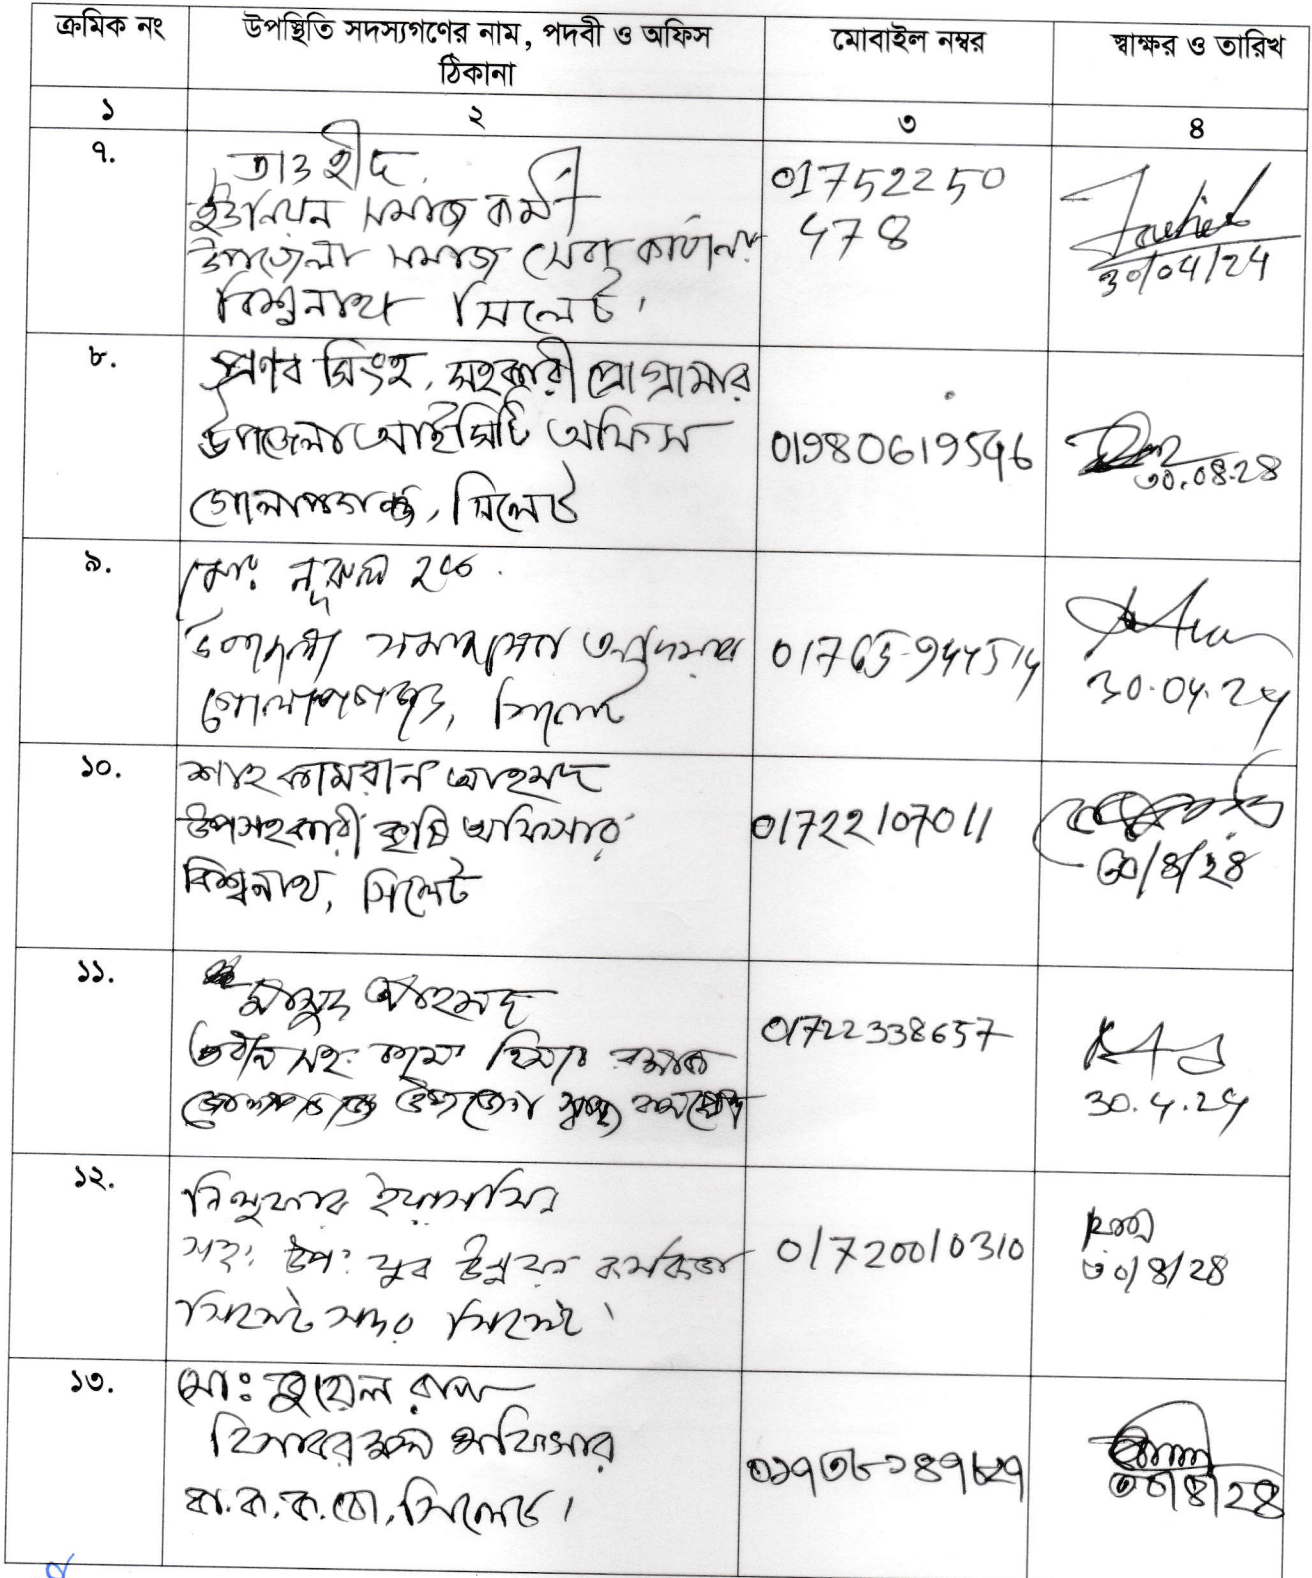 ক্রমিক নং উপস্থিতি সদস্যগণের নাম, পদবী ও অফিস মোবাইল নম্বর স্বাক্ষর ও তারিখ
ঠিকানা
১ ২ ৩ ৪
৭.
তাওহীদ
ইউনিয়ন সমাজ কর্মী
উপজেলা সমাজ সেবা কার্যালয়
বিশ্বনাথ সিলেট।
01752250
478
30/04/24
৮.
প্রণব সিংহ, সহকারী প্রোগ্রামার
উপজেলা আইসিটি অফিস
গোলাপগঞ্জ, সিলেট
01980619546
৩০.০৪.২৪
৯.
মোঃ নূরুল হক
উপজেলা
গোলাপগঞ্জ, সিলেট
30.04.24
১০.
শাহ কামরান আহমদ
উপসহকারী কৃষি অফিসার
বিশ্বনাথ, সিলেট
01722107011
৩০/৪/২৪
১১.
মাসুদ আহমদ
উপজেলা স্বাস্থ্য
01722338657
30.4.24
১২.
নিলুফার ইয়াসমিন
সহঃ উপঃ যুব উন্নয়ন কর্মকর্তা
সিলেট সদর সিলেট।
01720010310
৩০/৪/২৪
১৩.
মোঃ জুয়েল রানা
হিসাবরক্ষণ অফিসার
সিলেট।
৩০/৪/২৪